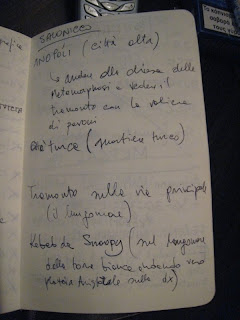 SALONICCO
ANOPOLI (città alta)
↳ andare alla chiesa della
Metamorphosi e vedersi il
tramonto con la voliera
di pavoni
turca (quartiere turco)
Tramonto sulla via principale
(il lungomare)
Kebab da Snoopy (sul lungomare
della torre bianca andando verso
Platia Aristotele sulla dx)